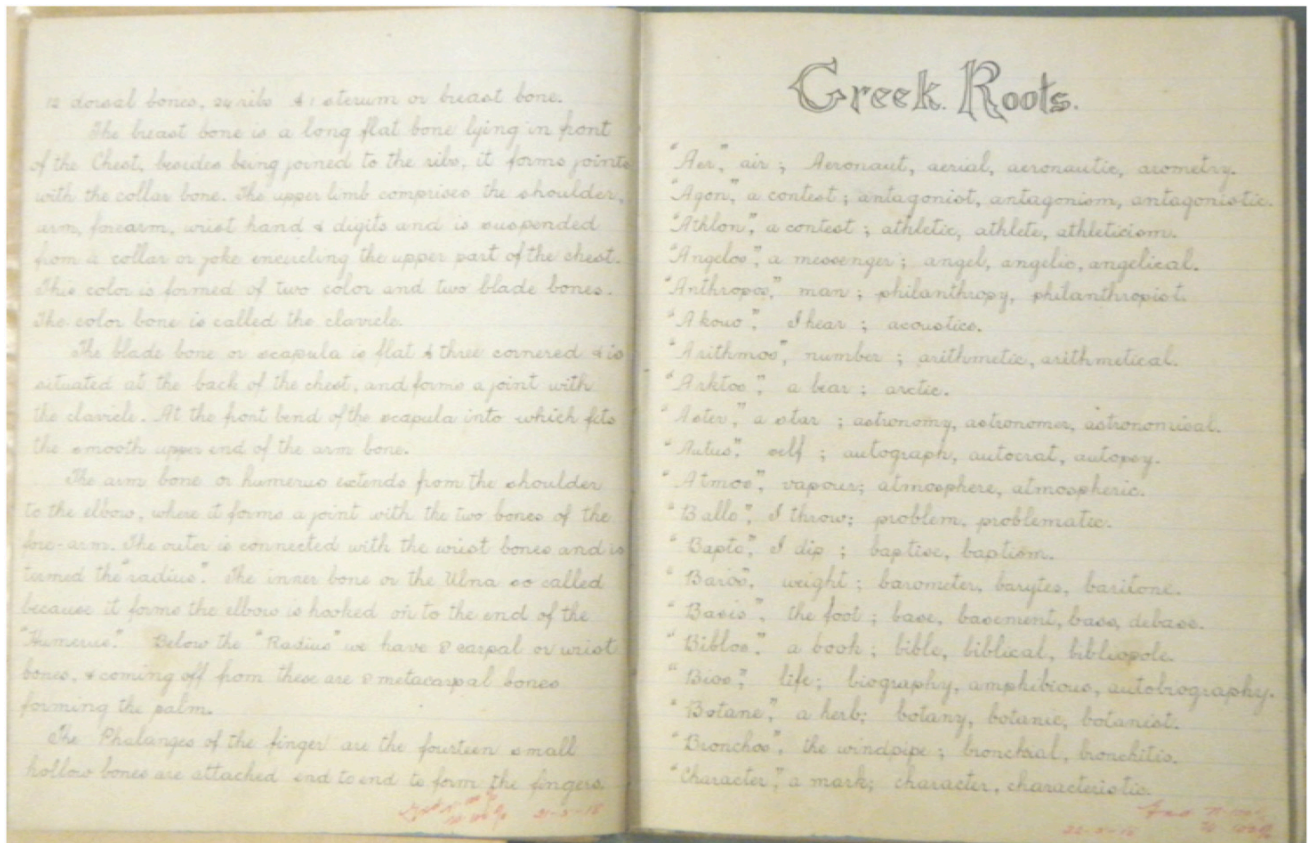 12 dorsal bones, 24 ribs & 1 sterum or breast bone.
The breast bone is a long flat bone lying in front
of the Chest, besides being joined to the ribs, it forms joints
with the collar bone. The upper limb comprises the shoulder,
arm, forearm, wrist hand & digits and is suspended
from a collar or yoke encircling the upper part of the chest.
This color is formed of two color and two blade bones.
The color bone is called the clavicle.
The blade bone or scapula is flat & three cornered & is
situated at the back of the chest, and forms a joint with
the clavicle. At the front bend of the scapula into which fits
the smooth upper end of the arm bone.
The arm bone or humerus extends from the shoulder
to the elbow, where it forms a joint with the two bones of the
fore-arm. The outer is connected with the wrist bones and is
termed the "radius". The inner bone or the Ulna so called
because it forms the elbow is hooked on to the end of the
"Humerus". Below the "Radius" we have 8 carpal or wrist
bones, & coming off from these are 8 metacarpal bones
forming the palm.
The Phalanges of the finger are the fourteen small
hollow bones are attached end to end to form the fingers.
Greek Roots.
"Aer", air; Aeronaut, aerial, aeronautic, arometry.
"Agon", a contest; antagonist, antagonism, antagonistic.
"Athlon", a contest; athletic, athlete, athleticism.
"Angelos", a messenger; angel, angelic, angelical.
"Anthropos," man; philanthropy, philanthropist.
"Akouo", I hear; acoustics.
"Arithmos", number; arithmetic, arithmetical.
"Arktos", a bear; arctic.
"Aster", a star; astronomy, astronomer, astronomical.
"Autus", self; autograph, autocrat, autopsy.
"Atmos", vapour; atmosphere, atmospheric.
"Ballo", I throw; problem, problematic.
"Bapto", I dip; baptise, baptism.
"Baros", weight; barometer, barytes, baritone.
"Basis", the foot; base, basement, bass, debase.
"Biblos", a book; bible, biblical, bibliopole.
"Bios", life; biography, amphibious, autobiography.
"Botane", a herb; botany, botanic, botanist.
"Bronchos", the windpipe; bronchial, bronchitis.
"Character", a mark; character, characteristic.